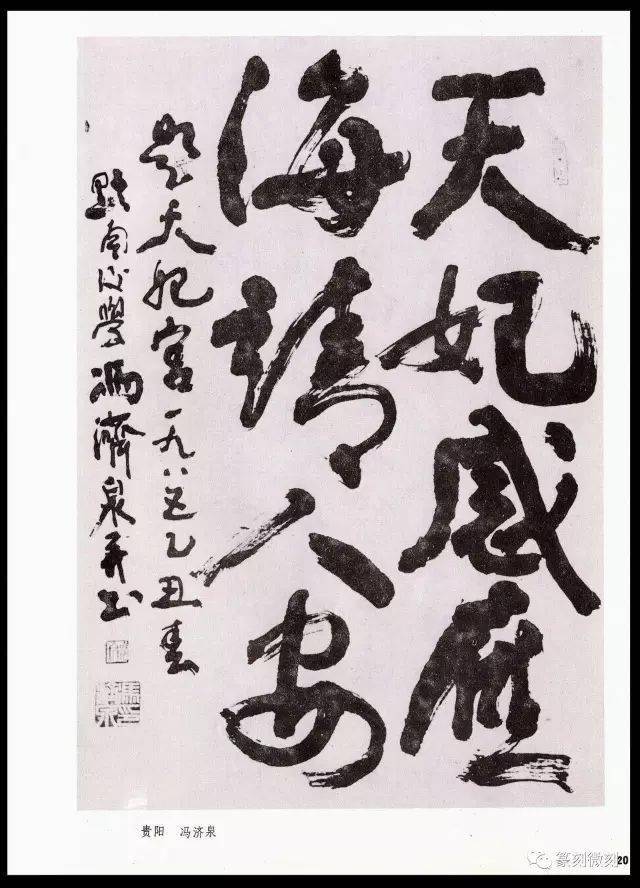 天妃感應
海靖人安
題天妃宫一九八五乙丑春
黔南後學馮濟泉并书
贵阳 冯济泉
篆刻微刻
20